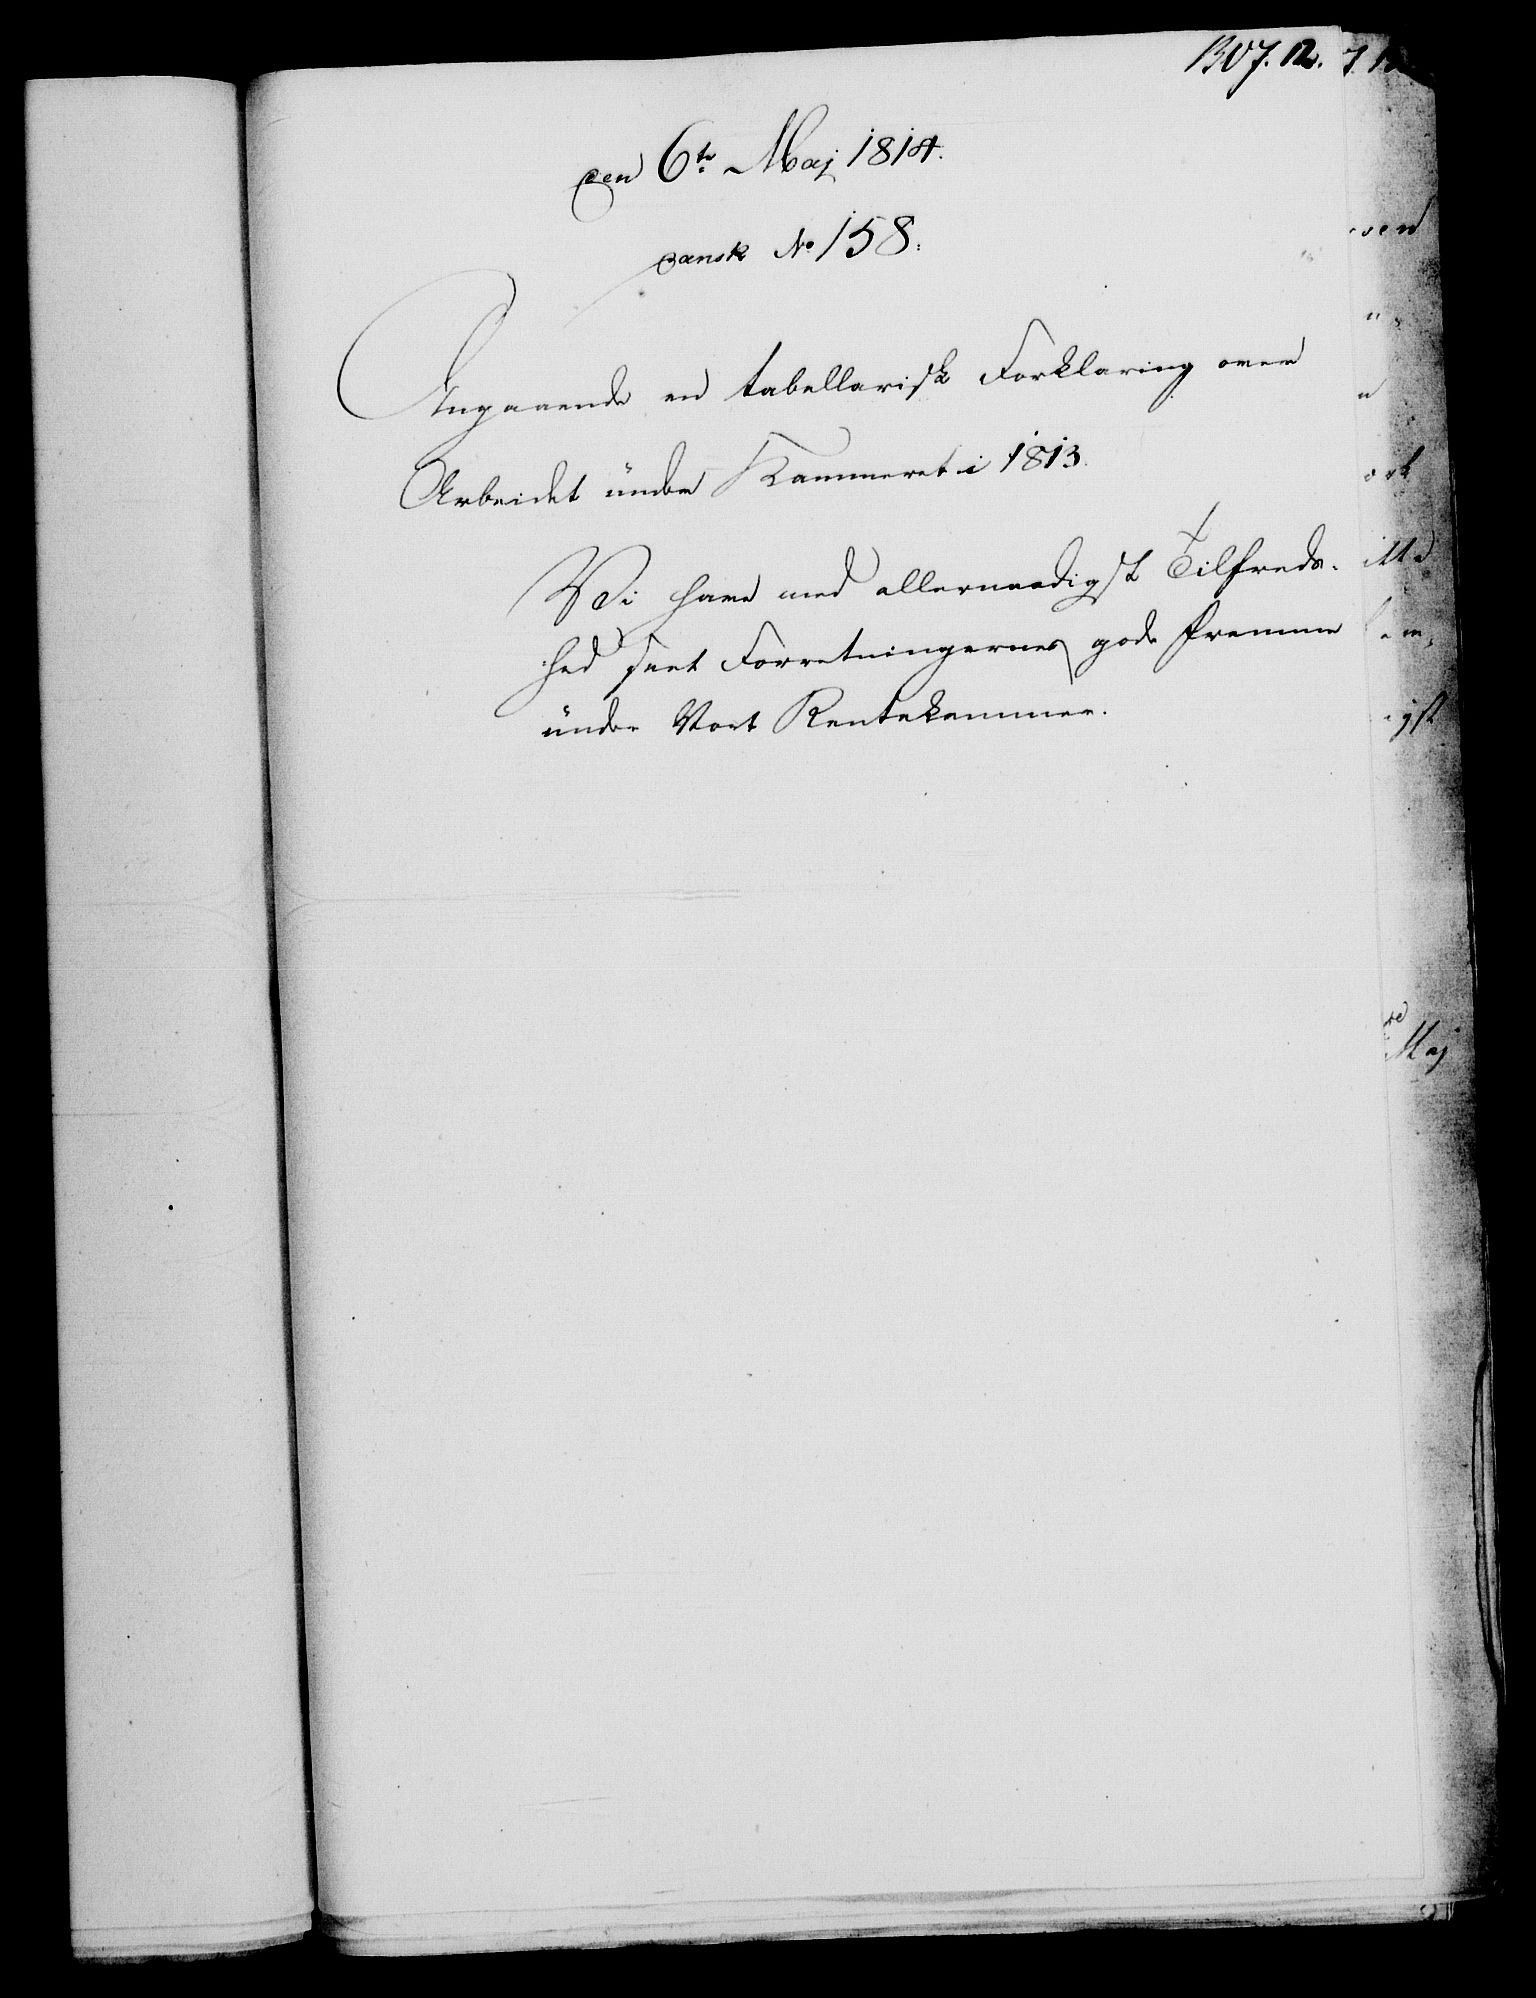 1307. 12.
den 6te Maj 1814.
Dansk No 158.
Angaaende en tabellarisk Forklaring over
Arbeidet under Kammeret i 1813.
Vi have med allernaadigst Tilfreds-
hed seet Forretningernes gode Fremme
under Vort Rentekammer.
Maj